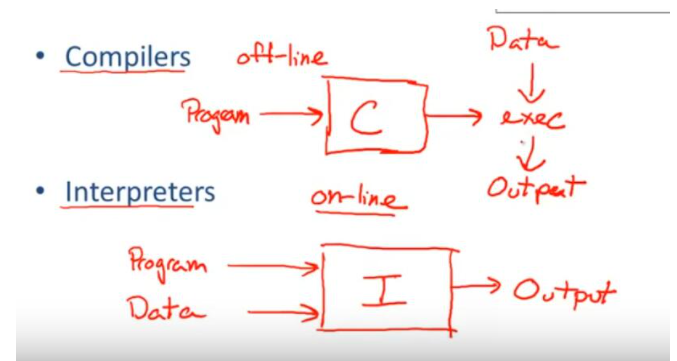 • Compilers off-line
Data
Program → C → exec
Output
• Interpreters on-line
Program
I → Output
Data